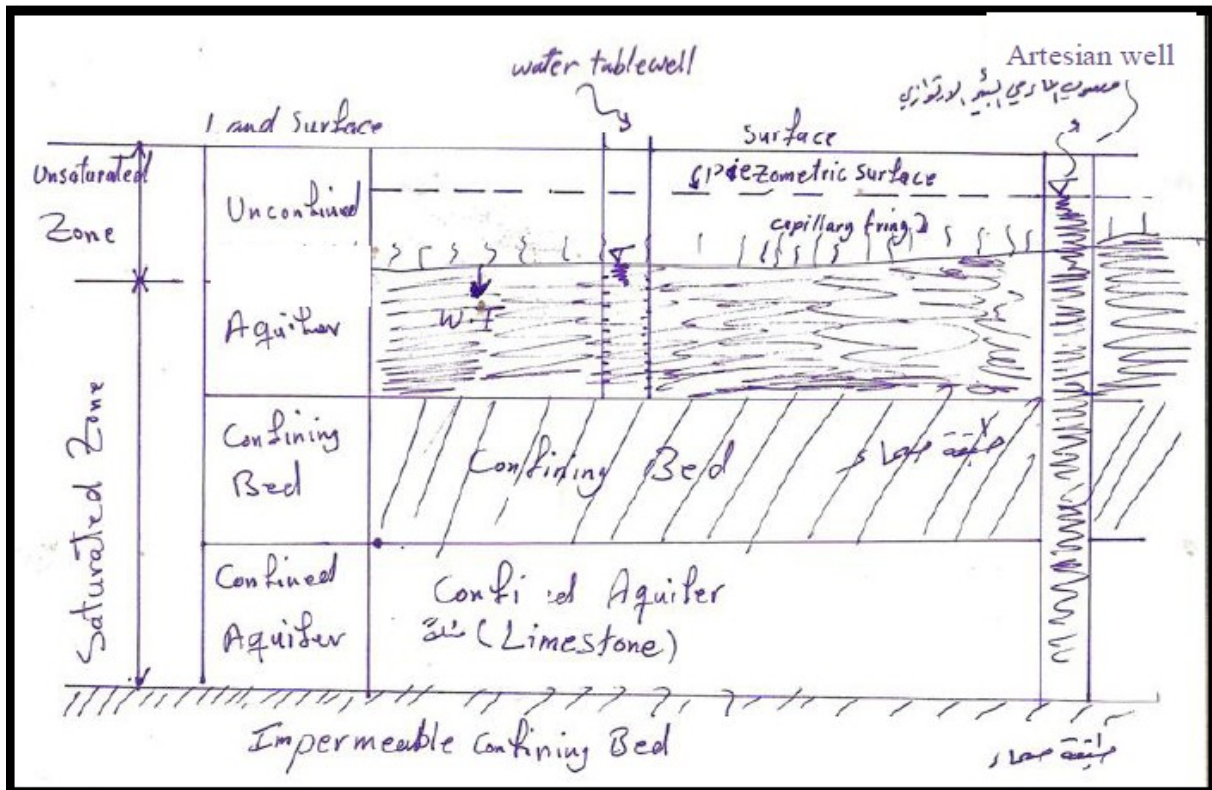 Artesian well
water tablewell
Land Surface
Surface
Unsaturated
Zone
Unconfined
Aquifer
Piezometric surface
capillary fring
W.T
Saturated Zone
Confining
Bed
Confining Bed
طبقة صماء
Confined
Aquifer
Confined Aquifer
(Limestone)
Impermeable Confining Bed
طبقة صماء